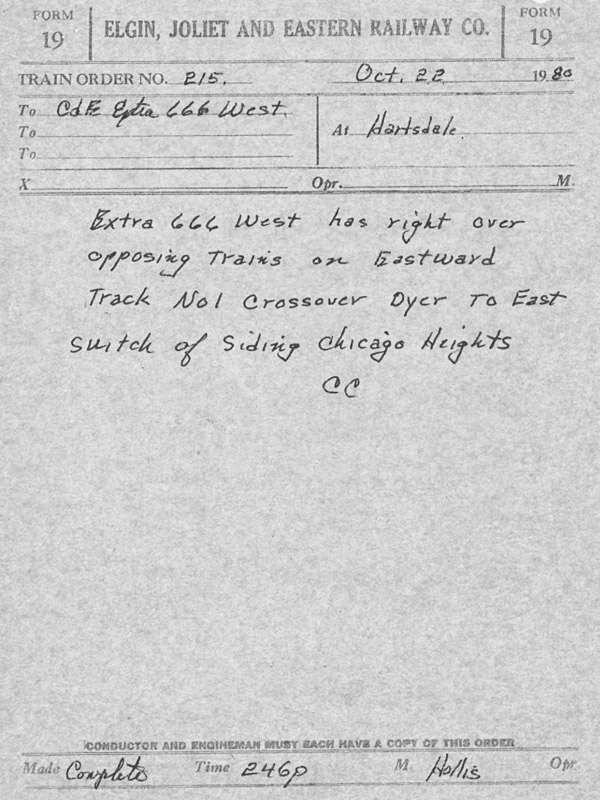 FORM 19 ELGIN, JOLIET AND EASTERN RAILWAY CO. FORM 19
TRAIN ORDER NO. 215. Oct. 22 1980
To C&E Extra 666 West. At Hartsdale.
To
To
X Opr. M.
Extra 666 West has right over
opposing Trains on Eastward
Track No1 Crossover Dyer To East
Switch of Siding Chicago Heights
CC
CONDUCTOR AND ENGINEMAN MUST EACH HAVE A COPY OF THIS ORDER
Made Complete Time 246p M Hollis Opr